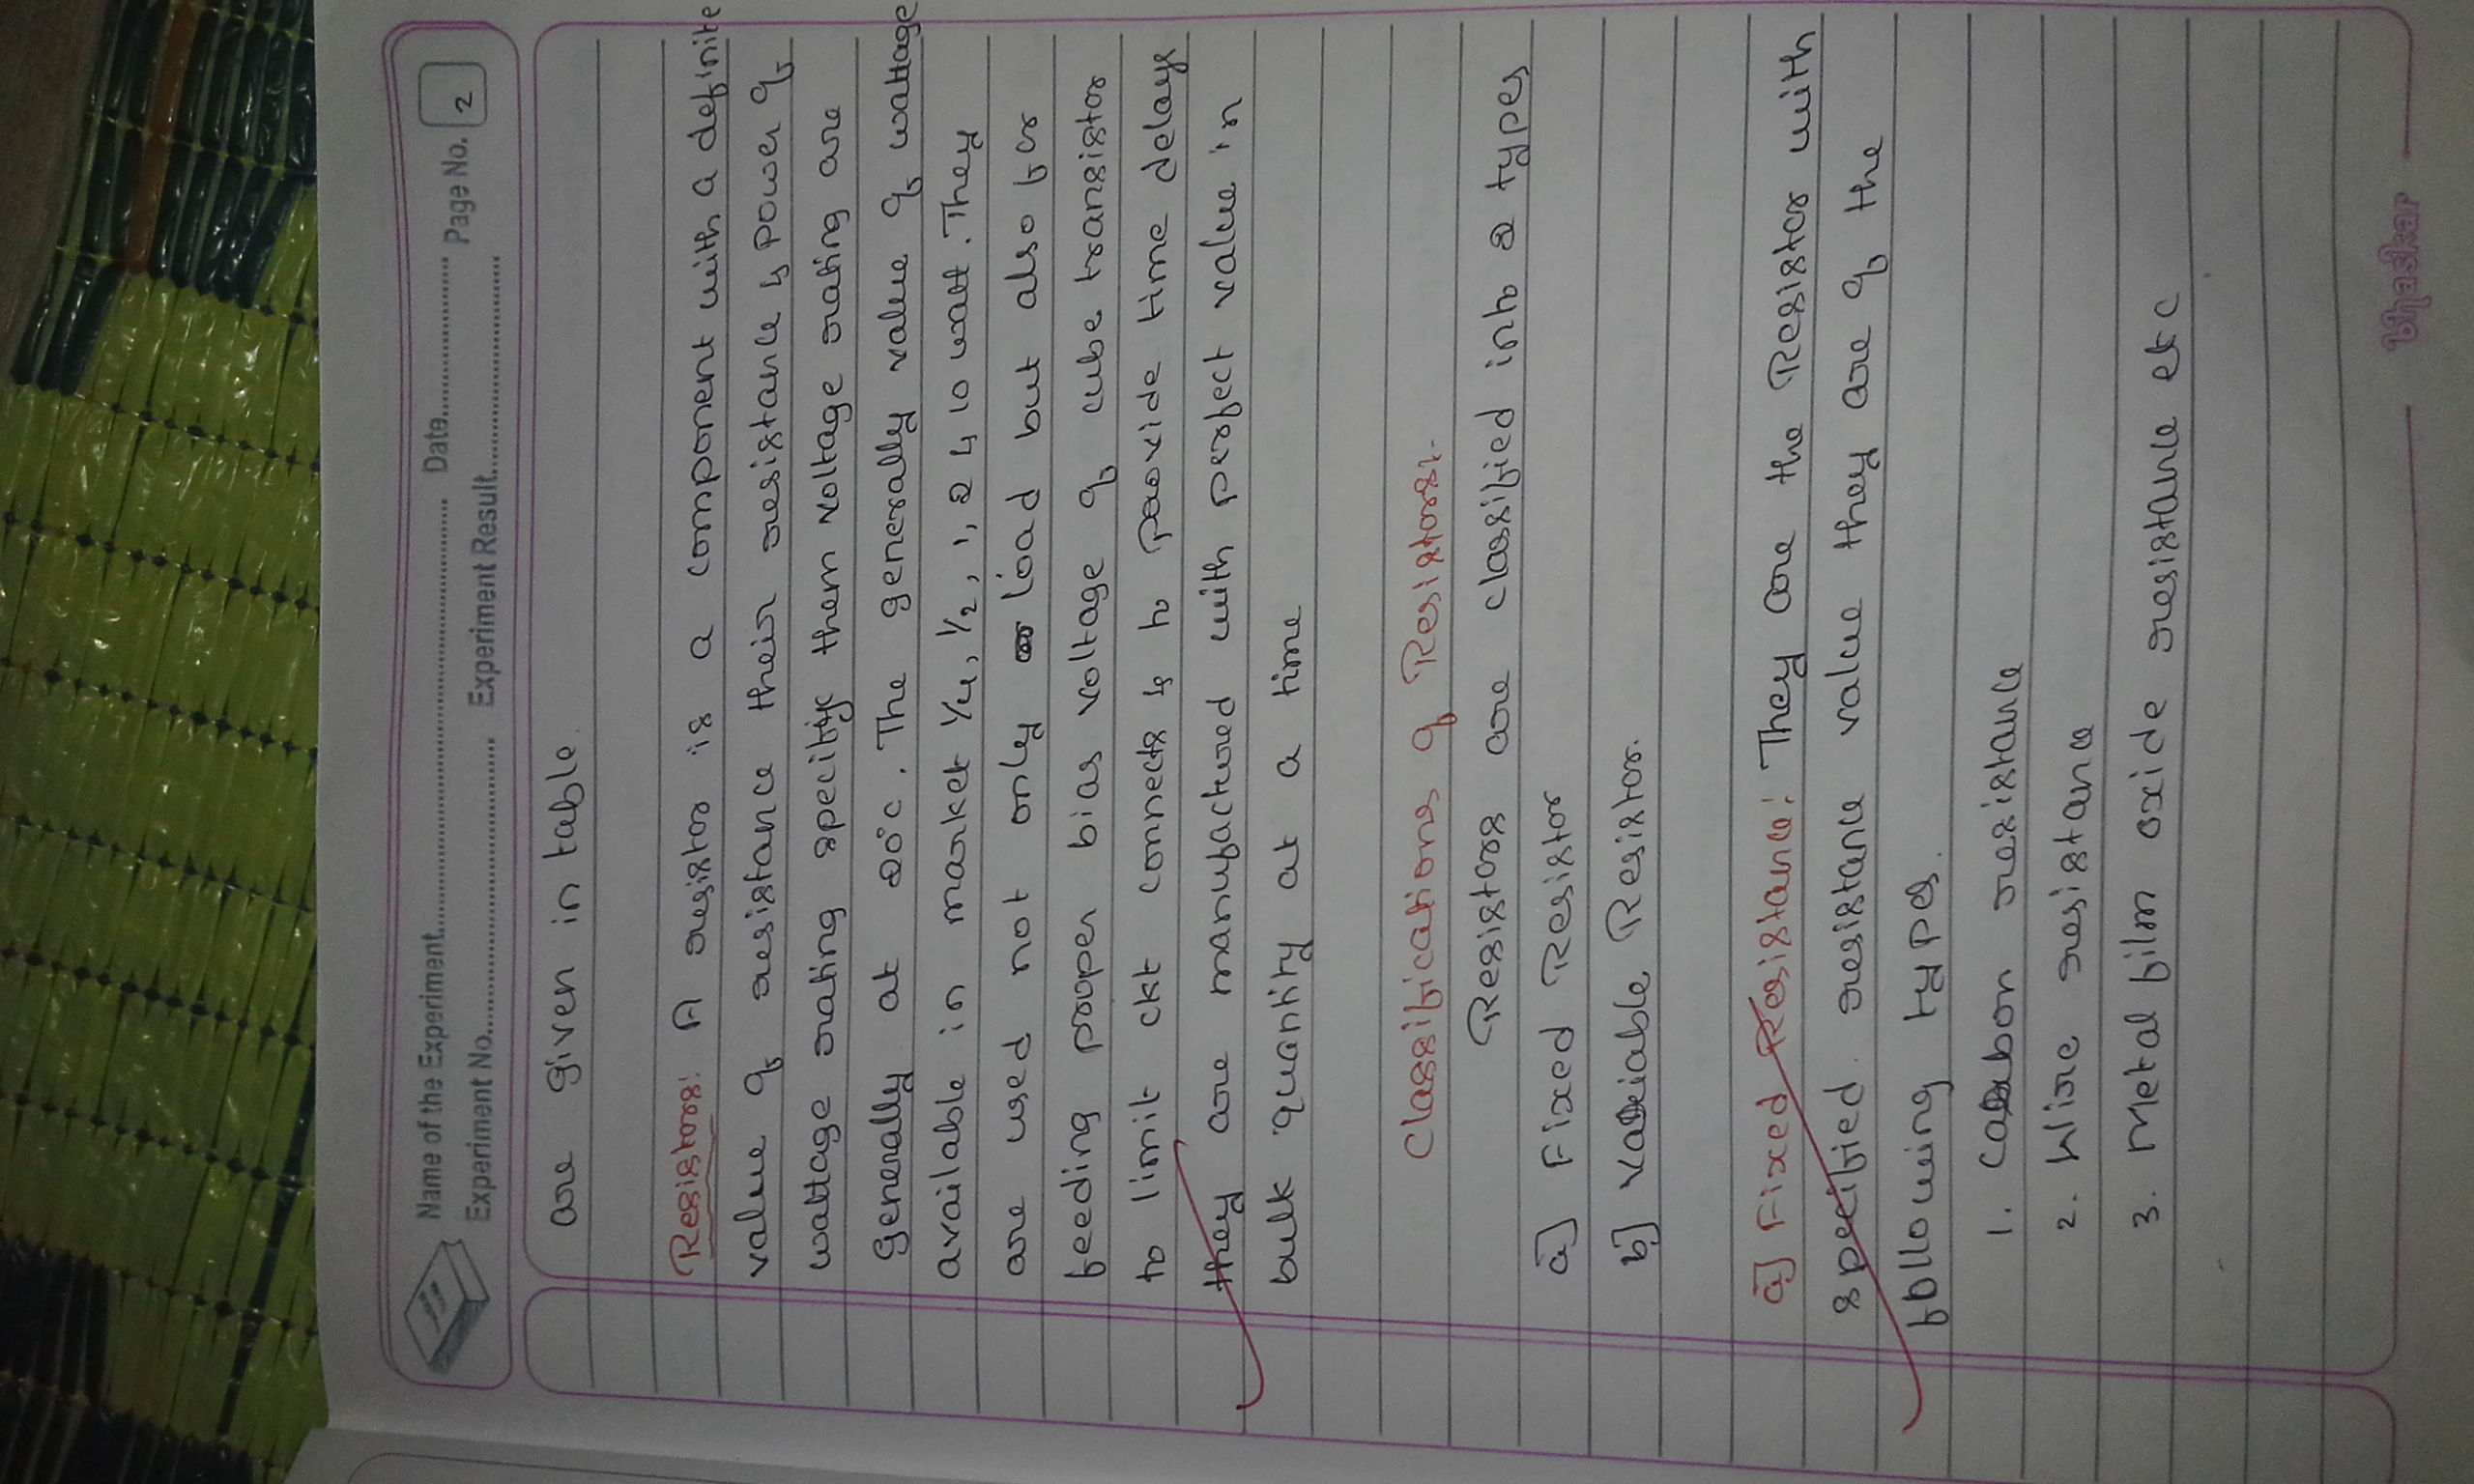 Name of the Experiment Date Page No. 2
Experiment No. Experiment Result
are given in table.
Resistors: A resistor is a component with a definite
value of resistance their resistance & power of
wattage rating specify them voltage rating are
generally at 20°c. The generally value of wattage
available in market 1/4, 1/2, 1, 2 & 10 watt. They
are used not only load but also for
feeding proper bias voltage of cube transistor
to limit ckt connects & to provide time delays
they are manufactured with perfect value in
bulk quantity at a time
Classifications of Resistors:-
Resistors are classified into 2 types
a] Fixed Resistor
b] Variable Resistor.
a] Fixed Resistance: They are the Resistor with
specified resistance value they are of the
following types.
1. Carbon resistance
2. Wire resistance
3. Metal film oxide resistance etc
bhaskar